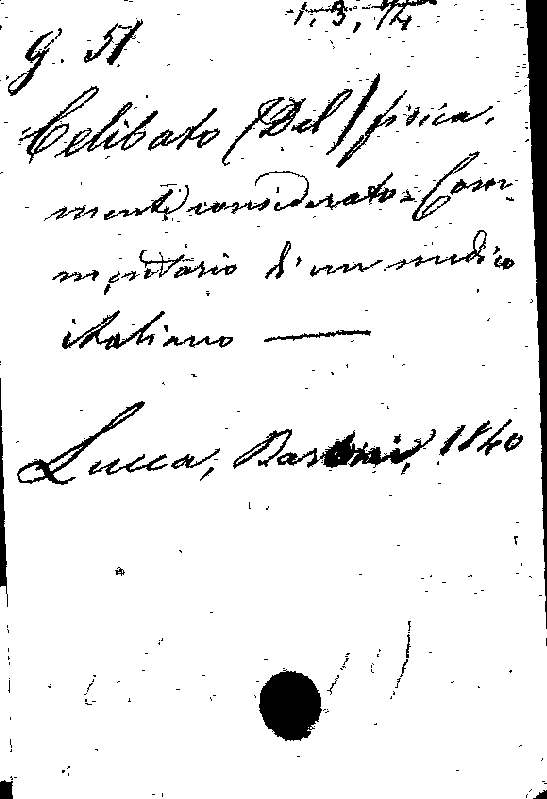 1, 3, 14
G. 51
Celibato (Del) fisica-
mente considerato. Com-
mentario di un medico
italiano —
Lucca, Baroni, 1840